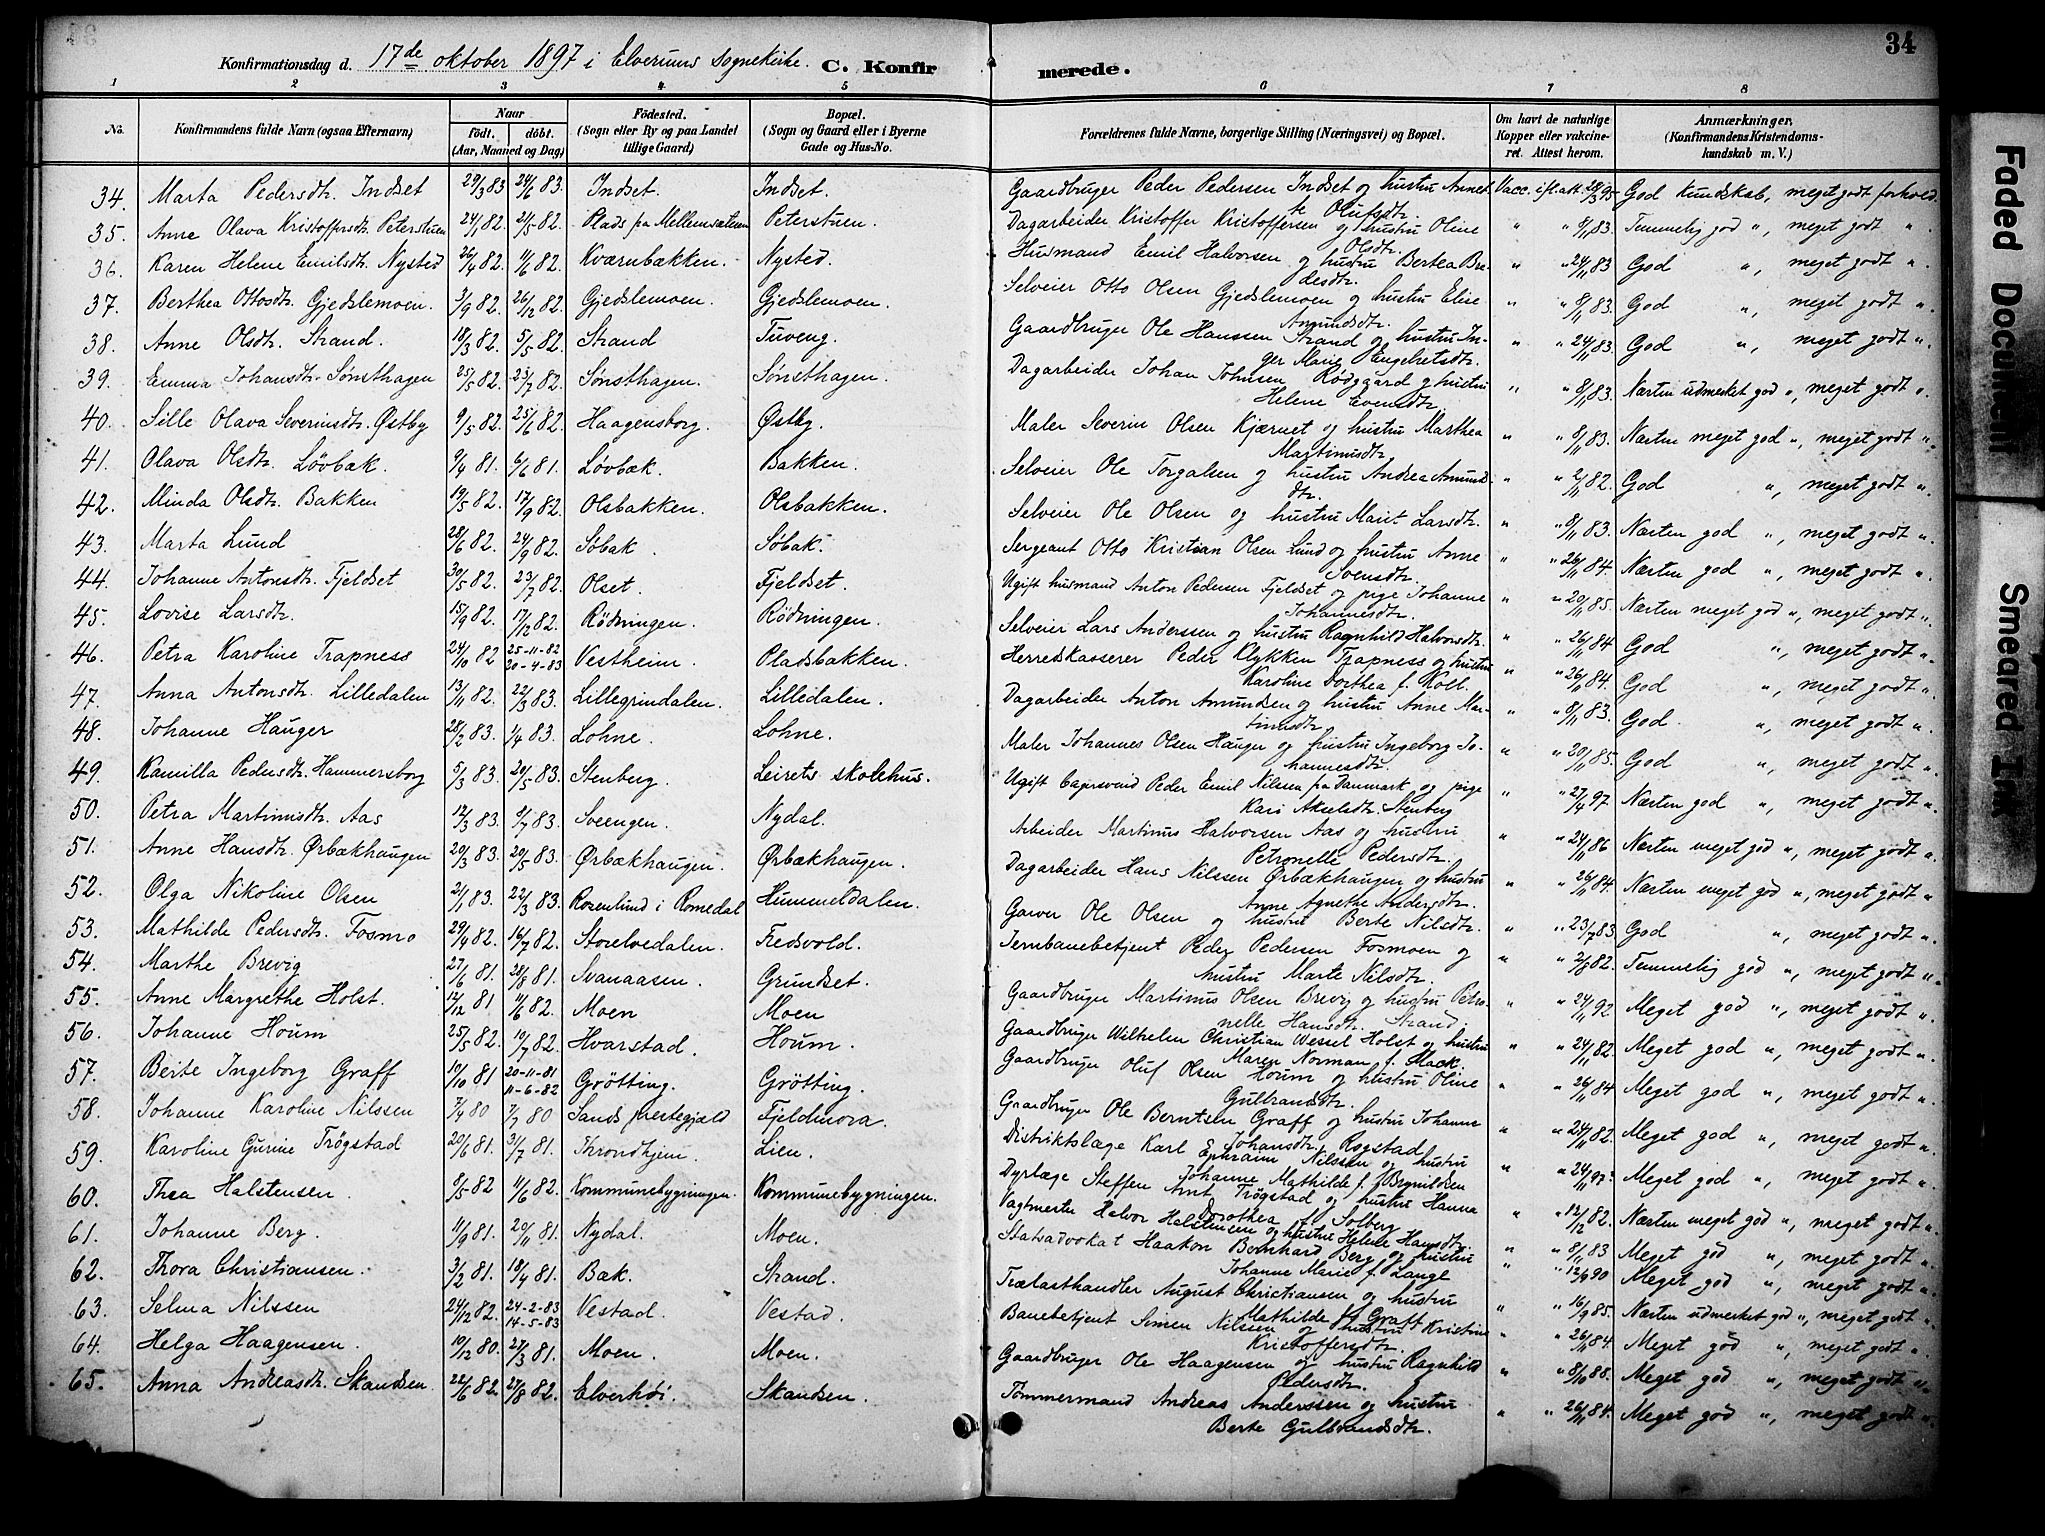 34
Konfirmationsdag d. 17de oktober 1897 i Elverums sognekirke. C. Konfirmerede.
1 2 3 4 5 6 7 8
No. Konfirmandens fulde Navn (ogsaa Efternavn) Naar födt. döbt. (Aar, Maaned og Dag) Födested. (Sogn eller By og paa Landet tillige Gaard) Bopæl. (Sogn og Gaard eller i Byerne Gade og Hus-No. Forældrenes fulde Navne, borgerlige Stilling (Næringsvei) og Bopæl. Om havt de naturlige Kopper eller vakcineret. Attest herom. Anmærkninger. (Konfirmandens Kristendomskundskab m. V.)
34. Marta Pedersdtr. Indset 29/3 83 24/6 83. Indset. Indset. Gaardbruger Peder Pedersen Indset og hustru Annette Olufsdtr. Vacc. ifl. att. 28/3 95 God kundskab, meget godt forhold.
35. Anne Olava Kristoffersdtr. Peterstuen 24/1 82. 21/5 82. Plads paa Mellemsæteren Peterstuen. Dagarbeider Kristoffer Kristoffersen og hustru Oline Olsdtr. " " 8/11 83. Temmelig god ", meget godt ".
36. Karen Helene Emilsdtr. Nysted 26/4 82. 11/6 82. Kværnbækken. Nysted. Husmand Emil Halvorsen og hustru Bertea Bredesdtr. " " 24/11 83 God ", meget godt ".
37. Berthea Ottosdtr. Gjedslemoen. 3/9 82. 26/12 82. Gjedslemoen. Gjedslemoen. Selveier Otto Olsen Gjedslemoen og hustru Elie Amundsdtr. " " 8/11 83. God ", meget godt ".
38. Anne Olsdtr. Strand. 18/3 82. 5/5 82. Strand Tuveng. Gaardbruger Ole Hanssen Strand og hustru Inger Marie Engebretsdtr. " " 24/11 83. God ", meget godt ".
39. Emma Johansdtr. Sønsthagen 25/5 82. 23/7 82. Sønsthagen. Sønsthagen. Dagarbeider Johan Johnsen Rödgaard og hustru Helene Evensdtr. " " 8/11 83. Næsten udmerket god ", meget godt ".
40. Sille Olava Severinsdtr. Østby 9/5 82. 25/6 82. Haagensborg. Østby. Maler Severin Olsen Kjærnet og hustru Marthea Martinusdtr. " " 8/11 83. Næsten meget god ", meget godt ".
41. Olava Olsdtr. Løvbæk. 9/4 81. 6/6 81. Løvbæk. Bakken. Selveier Ole Torgalsen og hustru Andrea Amundsdtr. " " 2/11 82. God ", meget godt ".
42. Minda Olsdtr. Bakken 19/5 82. 17/9 82. Olsbakken. Olsbakken. Selveier Ole Olsen og hustru Marit Larsdtr. " " 8/11 83. Næsten god ", meget godt ".
43. Marta Lund 28/6 82. 24/9 82. Søbak. Søbak. Sergeant Otto Kristian Olsen Lund og hustru Anne Svensdtr. " " 26/11 84. Næsten god ", meget godt ".
44. Johanne Antonsdtr. Fjeldset 30/5 82. 23/7 82. Olset. Fjeldset. Ugift husmand Anton Pedersen Fjeldset og pige Johanne Johannesdtr. " " 20/11 85. Næsten meget god ", meget godt ".
45. Lovise Larsdtr. 15/9 82. 17/12 82. Rödningen. Rödningen. Selveier Lars Anderssen og hustru Ragnhild Halvorsdtr. " " 26/11 84 God ", meget godt ".
46. Petra Karoline Trapness 24/10 82 25-11-82 20-4-83 Vestheim. Pladsbakken. Herredskasserer Peder Klykken Trapness og hustru Karoline Dorthea f. Koll. " " 26/11 84. God ", meget godt ".
47. Anna Antonsdtr. Lilledalen 13/11 82. 22/3 83. Lillegrindalen. Lilledalen. Dagarbeider Anton Amundsen og hustru Anne Martinusdtr. " " 8/11 83. God ", meget godt ".
48. Johanne Hauger 28/2 83. 1/4 83. Lohne. Lohne. Maler Johannes Olsen Hauger og hustru Ingeborg Johannesdtr. " " 20/11 85. God ", meget godt ".
49. Kamilla Pedersdtr. Hammersborg 5/3 83. 20/5 83. Stenberg. Leirets skolehus. Ugift Peder Emil Nilssen fra Danmark og pige Kari Akselsdtr. Stenberg " " 27/4 97 Næsten god ", meget godt ".
50. Petra Martinusdtr. Aas 12/3 83. 8/7 83. Sveengen. Nydal. Arbeider Martinus Halvorsen Aas og hustru Petronelle Pedersdtr. " " 24/11 86 Næsten meget god ", meget godt ".
51. Anne Hansdtr. Ørbækhaugen 20/3 83. 20/5 83. Ørbækhaugen. Ørbækhaugen. Dagarbeider Hans Nilssen Ørbækhaugen og hustru Anne Agnethe Andersdtr. " " 26/11 84. Næsten meget god ", meget godt "
52. Olga Nikoline Olsen 2/1 83. 22/3 83. Rosenlund i Romedal Hummeldalen. Garver Ole Olsen og hustru Berte Nilsdtr. " " 23/7 83. God ", meget godt ".
53. Mathilde Pedersdtr. Fosmo 29/4 82. 16/7 82. Storelvedalen. Fredsvold. Jernbanebetjent Peder Pedersen Fosmoen og hustru Marte Nilsdtr. " " 2/8 82. Temmelig god ", meget godt ".
54. Marthe Brevig 27/6 81. 28/8 81. Svanaasen. Grundset. Gaardbruger Martinus Olsen Brevig og hustru Petronelle Hansdtr. Strand. " " 24/11 92 Meget god ", meget godt ".
55. Anne Margrethe Holst. 12/12 81 11/6 82. Moen Moen Gaardbruger Wilhelm Christian Wessel Holst og hustru Maren Norman f. Mack. " " 24/11 82. Meget god ", meget godt ".
56. Johanne Houm 25/5 82. 19/7 82. Hvarstad. Houm. Gaardbruger Oluf Olsen Houm og hustru Oline Gulbrandsdtr. " " 26/11 84 Meget god ", meget godt ".
57. Berte Ingeborg Graff 19/10 81 20-11-81 11-6-82 Grötting. Grötting. Gaardbruger Ole Berntsen Graff og hustru Johanne Johansdtr. Rogstad. " " 24/11 82. Meget god ", meget godt ".
58. Johanne Karoline Nilssen 7/4 80 7/7 80 Sands prestegjæld Fjeldmora. Distriktslæge Karl Ephraim Nilssen og hustru Johanne Mathilde f. Brynildsen " " 24/11 97. Meget god ", meget godt ".
59. Karoline Gurine Trögstad 20/6 81. 31/7 81. Throndhjem. Lien. Dyrlæge Steffen Arnt Trögstad og hustru Hanna Dorothea f. Solberg " " 12/12 82. Næsten meget god ", meget godt ".
60. Thea Halstensen. 8/5 82 11/6 82. Kommunebygningen. Kommunebygningen. Vagtmester Halvor Halstensen og hustru Helene Hansdtr. " " 8/11 83 Meget god ", meget godt ".
61. Johanne Berg. 11/9 81. 20/11 81. Nydal. Moen. Statsadvokat Haakon Bernhard Berg og hustru Johanne Marie f. Lange " " 12/9 90 Meget god ", meget godt ".
62. Thora Christiansen. 3/2 81. 18/4 81. Bæk. Strand. Trælasthandler August Christiansen og hustru Mathilde f. Graff " " 16/9 85. Næsten udmerket god ", meget godt ".
63. Selma Nilssen 24/12 82. 24-2-83 14-5-83 Vestad. Vestad. Banebetjent Simen Nilssen og hustru Kristine Kristoffersdtr. " " 26/11 84. Meget god ", meget godt ".
64. Helga Haagensen. 19/12 80. 27/3 81. Moen. Moen. Gaardbruger Ole Haagensen og hustru Ragnhild Pedersdtr. " " 8/10 88. Meget god ", meget godt ".
65. Anna Andreasdtr. Skandsen. 22/6 82. 27/8 82. Elverhöi. Skandsen. Tömmermand Andreas Anderssen og hustru Berte Gulbrandsdtr. " " 26/11 84. Meget god ", meget godt ".
Faded Document
Smeared Ink